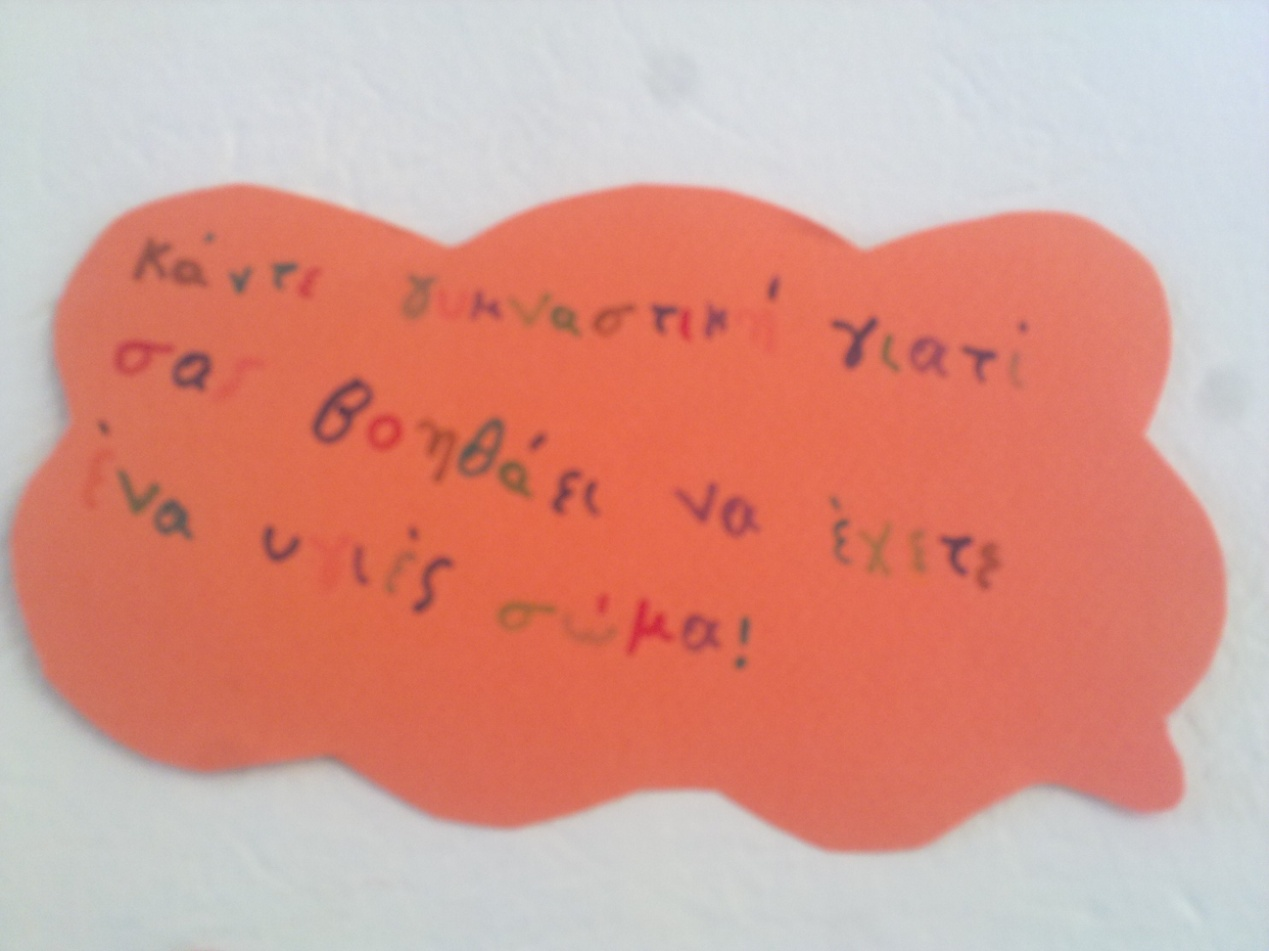 Κάντε γυμναστική γιατί
σας βοηθάει να έχετε
ένα υγιές σώμα!